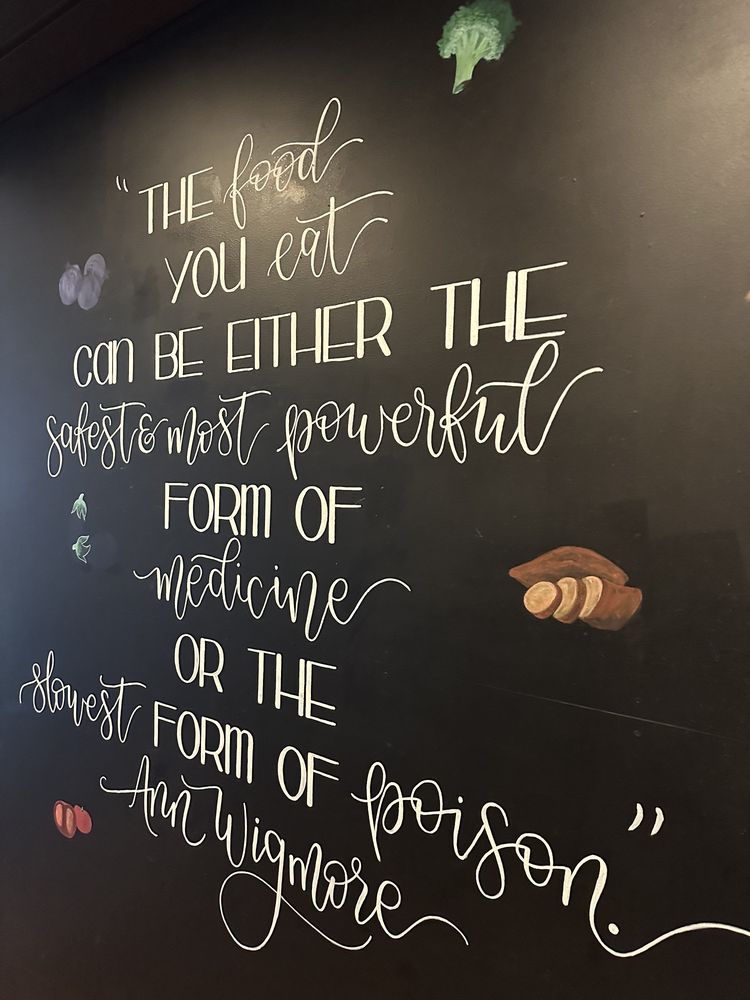 "THE food
YOU eat
can BE EITHER THE
safest & most powerful
FORM OF
medicine
OR THE
slowest FORM OF poison."
Ann Wigmore